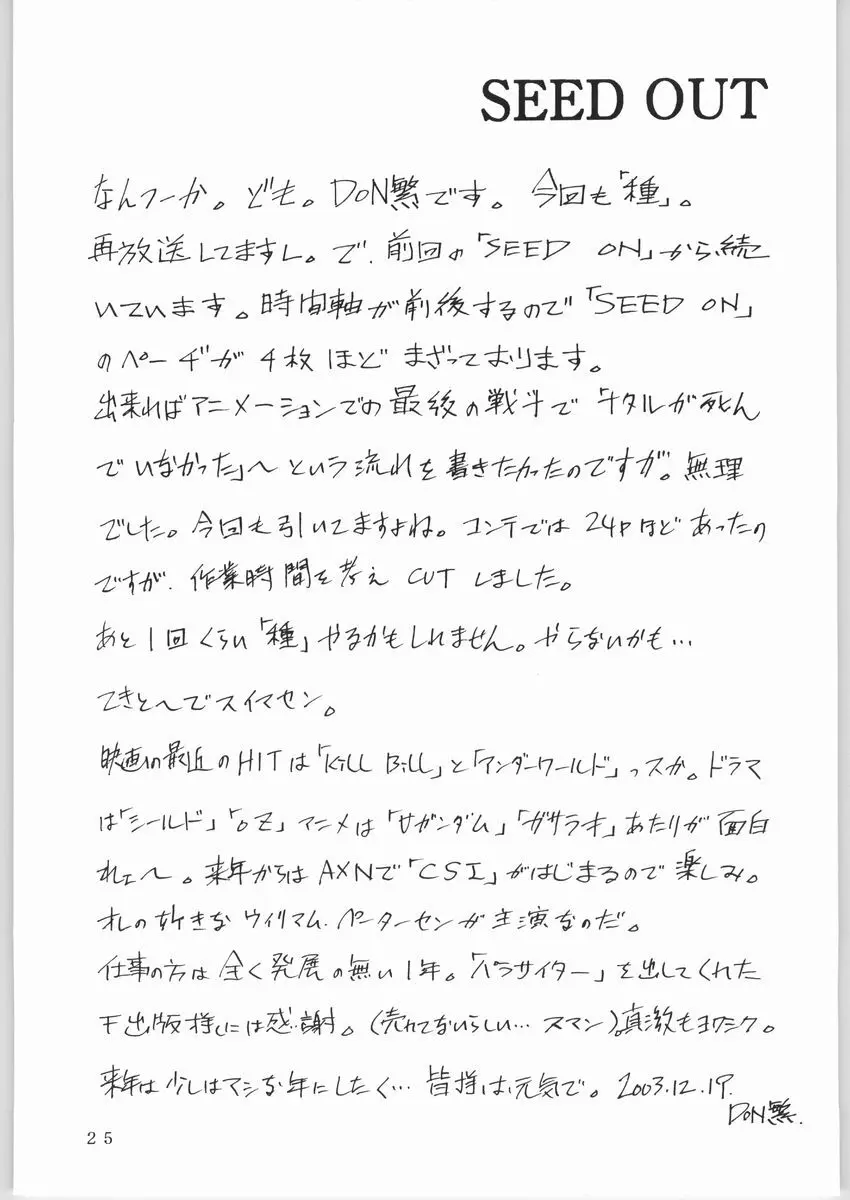 SEED OUT
なんつーか。ども。DON繁です。今回も「種」。
再放送してますし。で、前回の「SEED ON」から続
いています。時間軸が前後するので「SEED ON」
のページが4枚ほどまざっております。
出来ればアニメーションでの最後の戦斗で「ニタルが死ん
でいなかった」〜という流れを書きたかったのですが。無理
でした。今回も引いてますよね。コンテでは24Pほどあったの
ですが、作業時間を考えCUTしました。
あと1回くらい「種」やるかもしれません。やらないかも…
てきと〜でスイマセン。
映画の最近のHITは「Kill Bill」と「アンダーワールド」っスか。ドラマ
は「シールド」「OZ」アニメは「サガンダム」「ガサラオ」あたりが面白
れェ〜。来年からはAXNで「CSI」がはじまるので楽しみ。
オレの好きなウィリアム・ペーターセンが主演なのだ。
仕事の方は全く発展の無い1年。「パラサイター」を出してくれた
出版様には感謝。(売れてないらしい…スマン)真激もヨロシク。
来年は少しはマシな年にしたく…皆様は元気で。2003.12.19.
DON繁.
25